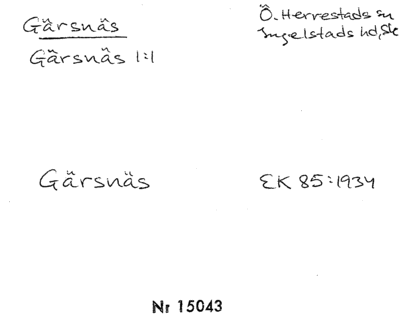 Gärsnäs
Ö. Herrestads sn
Ingelstads hd, Sk
Gärsnäs 1:1
Gärsnäs
EK 85:1934
Nr 15043